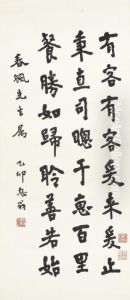 有客有客爰来爰止
秉直司聰于惠百里
餐勝如歸聆善若始
先生属
乙卯